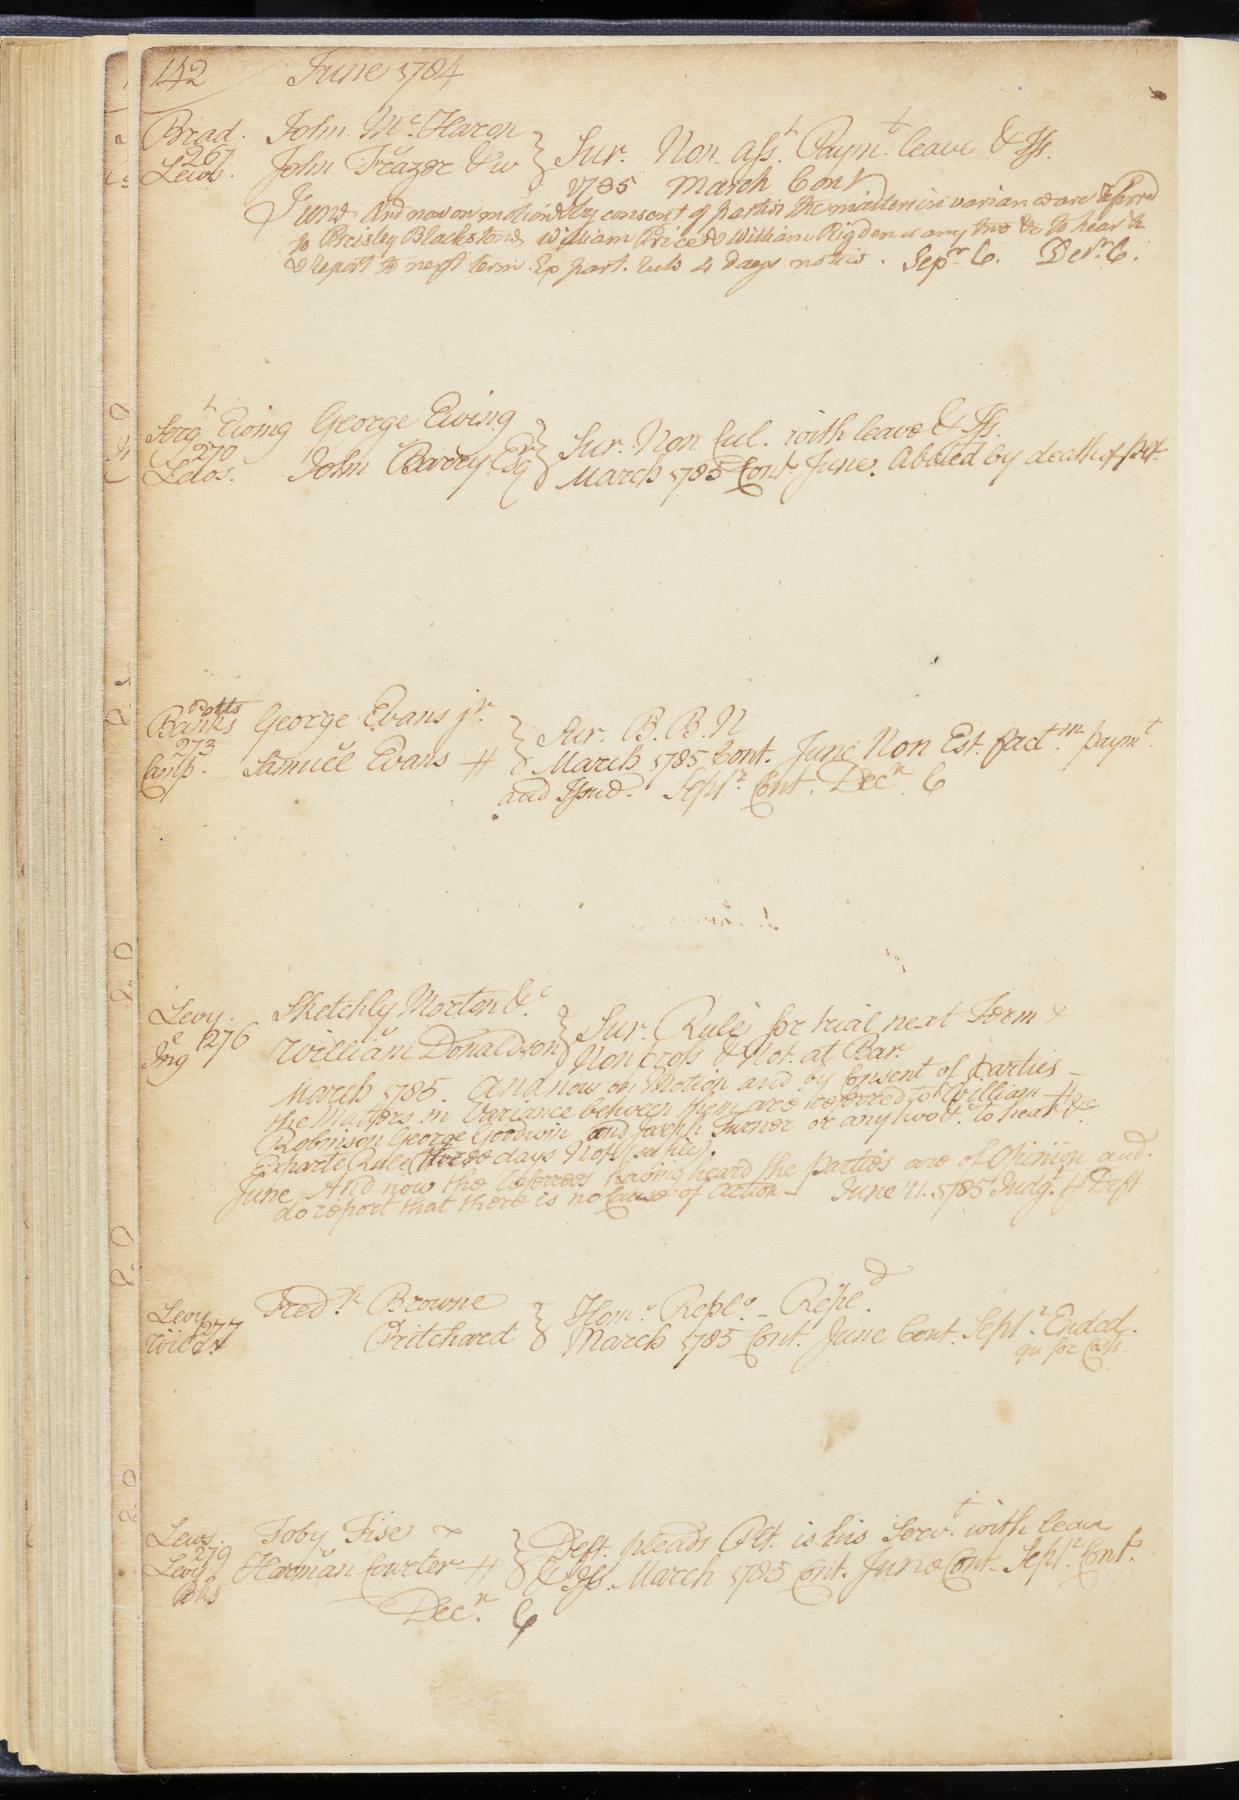 142 June 1784
Brad. John Mc. Haron
267 John Frazer & w } Sur. Non. Asst. Paymt. leave & Iss.
Lews. 1785 March Cont
June And now on motion & by consent of parties the matters in variance are referred
to Preisley Blackstone William Price & William Rigden or any two &c to hear &c
& report to next term. Ex part. rule 4 days notice. Sepr. C. Decr. C.
Sergt. Ewing George Ewing
270 John Barry Esqr } Sur. Non Cul. with leave & Iss.
Lews. March 1785 Cont. June. Abated by death of
Potts
Banks George Evans jr.
273 Samuel Evans # } Sur. B. B. N
March 1785 Cont. June Non Est. factm. paymt.
and Issue. Septr. Cont. Decr. C
Levy. Sketchly Morton &c.
276 William Donaldson } Sur. Rule for trial next Term
Ing Non pross & Not. at Bar.
March 1785. And now on Motion and by Consent of parties
the Matters in Variance between them are referred to William
Robinson George Goodwin and Joseph Turner or any two to hear &c
Exparte Rule three days Not.
June And now the Referees having heard the parties are of Opinion and
do report that there is no Cause of action June 11. 1785 Judgt. Deft
Levy Fredk. Browne
277 Pritchard } Hom. Repl. Repld.
March 1785 Cont. June Cont. Septr. Ended.
qu for Costs.
Lews. Toby Fise
279 Harman } Deft. pleads Plt. is his Servt. with leave
Levy & Iss. March 1785 Cont. June Cont. Septr. Cont.
Decr. C